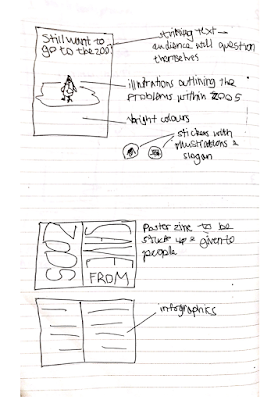 Still want to
go to the zoo?
striking text –
audience will question
themselves
illustrations outlining the
problems within zoos
bright colours
stickers with
illustrations &
slogan
ZOOS
FROM
Poster zine to be
stuck up & given to
people
infographics